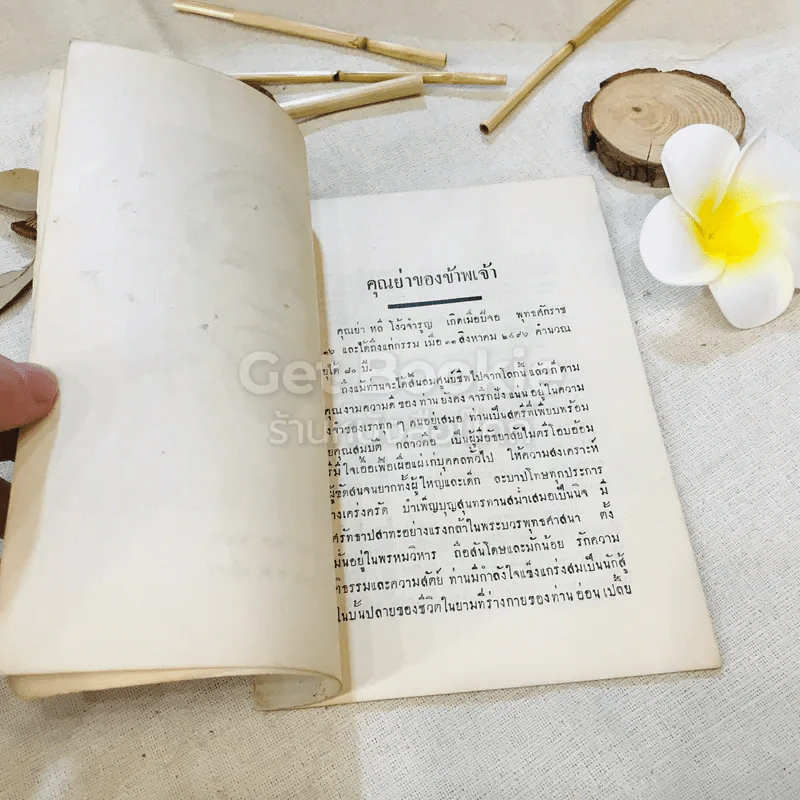 คุณย่าของข้าพเจ้า
คุณย่า หลี โง้วจำรูญ เกิดเมื่อปีจอ พุทธศักราช
และได้ถึงแก่กรรม เมื่อ ๓๑ สิงหาคม ๒๔๙๖ คำนวณ
ยุได้ ๘๑ ปี.
ถึงแม้ท่านจะได้สิ้นลมสูญชีพไปจากโลกนี้ แล้วก็ตาม
คุณงามความดี ของ ท่าน ยังคง จารึกฝัง แน่น อยู่ ในความ
งจำของเราทุก ๆ คนอยู่เสมอ ท่านเป็นสตรีที่เพียบพร้อม
ยคุณสมบัติ กล่าวคือ เป็นผู้มีอัธยาศัยไมตรีโอบอ้อม
มีใจเอื้อเฟื้อเผื่อแผ่แก่บุคคลทั่วไป ให้ความสงเคราะห์
ผู้ขัดสนจนยากทั้งผู้ใหญ่และเด็ก ละบาปโทษทุกประการ
างเคร่งครัด บำเพ็ญบุญสุนทรทานสม่ำเสมอเป็นนิจ มี
ศรัทธาปสาทะอย่างแรงกล้าในพระบวรพุทธศาสนา ตั้ง
มั่นอยู่ในพรหมวิหาร ถือสันโดษและมักน้อย รักความ
ติธรรมและความสัตย์ ท่านมีกำลังใจแข็งแกร่งสมเป็นนักสู้
ในบั้นปลายของชีวิตในยามที่ร่างกายของท่าน อ่อน เปลี้ย
Get Bookie
ร้านหนังสือเก็ทบุ๊คกี้